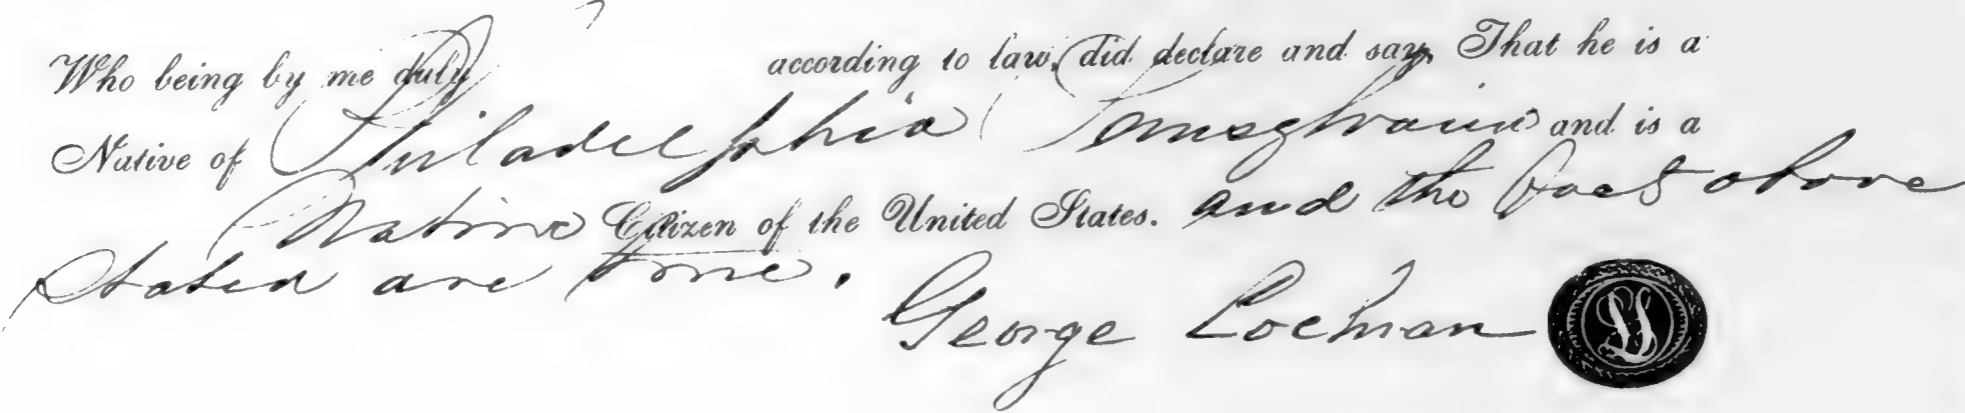 Who being by me duly according to law, did declare and say, That he is a
Native of Philadelphia Pennsylvania and is a
Native Citizen of the United States. and the fact above
stated are true.
George Lochman
LS